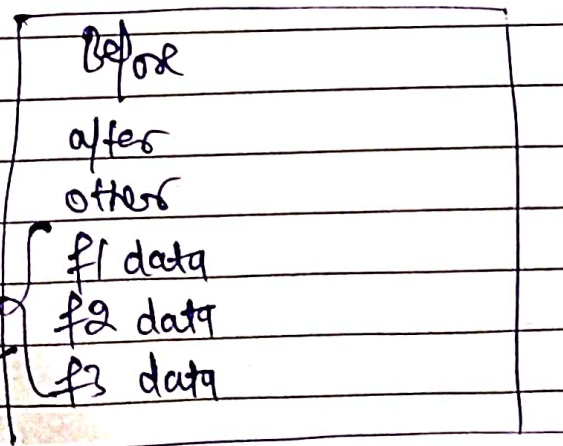 Before
after
other
f1 data
f2 data
f3 data